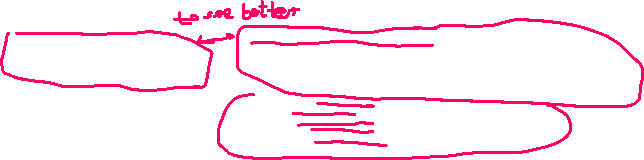 to see better